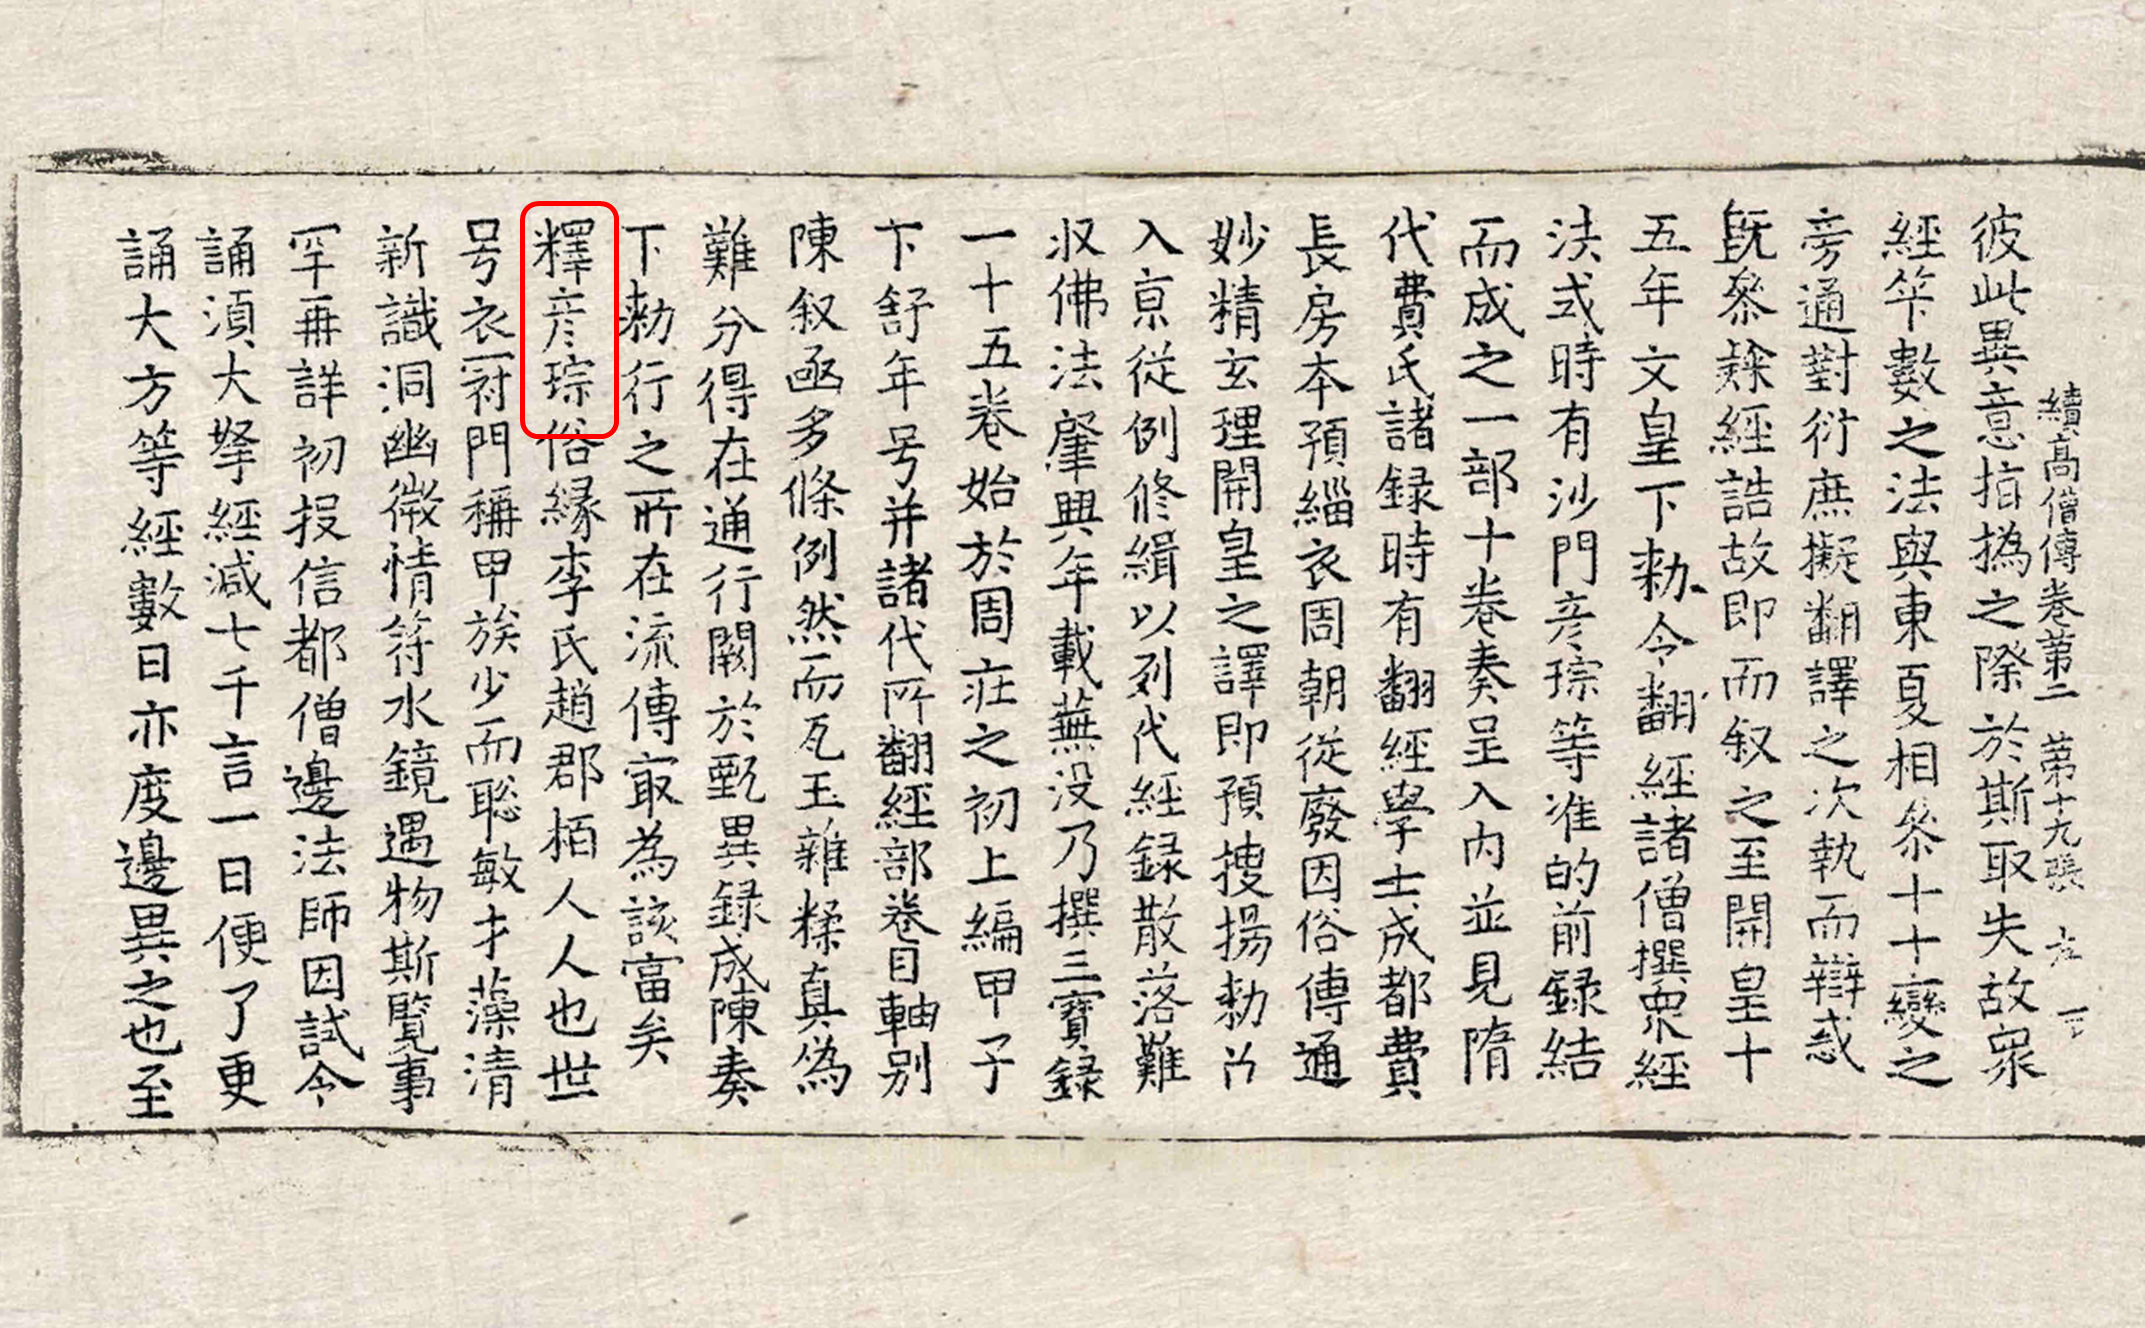 續高僧傳卷第二 第十九張
彼此異意拍搗之際於斯取失故衆
經竿數之法與東夏相叅十十變之
旁通對衍庶擬翻譯之次執而辯惑
既叅隸經誥故即而叙之至開皇十
五年文皇下勑令翻經諸僧撰衆經
法式時有沙門彦琮等准的前録結
而成之一部十卷奏呈入内並見隋
代費氏諸録時有翻經學士成都費
長房本預緇衣周朝從廢因俗傳通
妙精玄理開皇之譯即預搜揚勑召
入京從例修緝以列代經録散落難
収佛法肇興年載蕪没乃撰三寳録
一十五卷始於周莊之初上編甲子
下舒年号并諸代所翻經部卷目軸别
陳叙亟多條例然而瓦玉雜糅真偽
難分得在通行闕於甄異録成陳奏
下勑行之所在流傳㝡為該富矣
釋彦琮俗縁李氏趙郡栢人人也世
号衣冠門稱甲族少而聡敏才藻清
新識洞幽微情符水鏡遇物斯覽事
罕再詳初投信都僧邊法師因試令
誦湏大拏經減七千言一日便了更
誦大方等經數日亦度邊異之也至